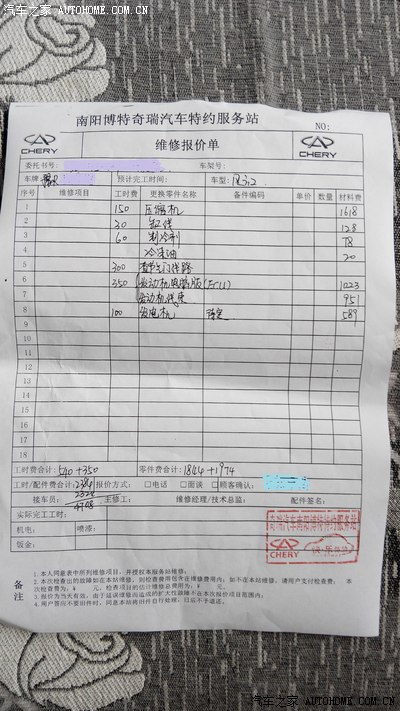 汽车之家 AUTOHOME.COM.CN
南阳博特奇瑞汽车特约服务站
NO:
CHERY
维修报价单
CHERY
委托书号: 车架号:
车牌: 预计完工时间: 车型:
序号 维修项目 工时费 更换零件名称 备件编码 单价 数量 材料费
1 150 压缩机 1618
2 20 128
3 60 制冷剂 78
4 冷冻油 20
5 300 线路
6 350 发动机电脑版(ECU) 1023
7 发动机线束 951
8 100 发电机 589
9
10
11
12
13
14
15
16
17
18
工时费合计: 540+350 零件费合计: 1844+1974
工时/配件费合计: 2384 报价方式: □电话 □面谈 □顾客确认:
2324
接车员: 主修工: 维修经理/技术总监: 配件签名:
4708
实际完工工时:
机电: 喷漆:
钣金:
奇瑞汽车南阳博特特约服务站
CHERY 快·乐体验
备注
1.本人同意表中所列维修项目,并授权本服务站维修;
2.本次检查出的故障如在本站维修,则检查费用包含在维修费用内;如不在本站维修,请用户支付检查费: 本
次检查费为:¥ 元,检查项目的估计维修总费用为:¥ 元;
3.报价为当天有效,由于延误维修而造成的扩大性故障不在本次报价项目范围内;
4.用户答应不要旧件时,同意本站将旧件自行处理,日后不予退还。
汽车之家 AUTOHOME.COM.CN